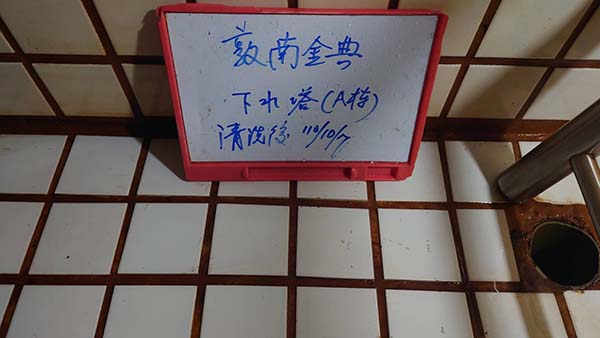 敦南金典
下水塔(A特)
清洗後 110/10/7